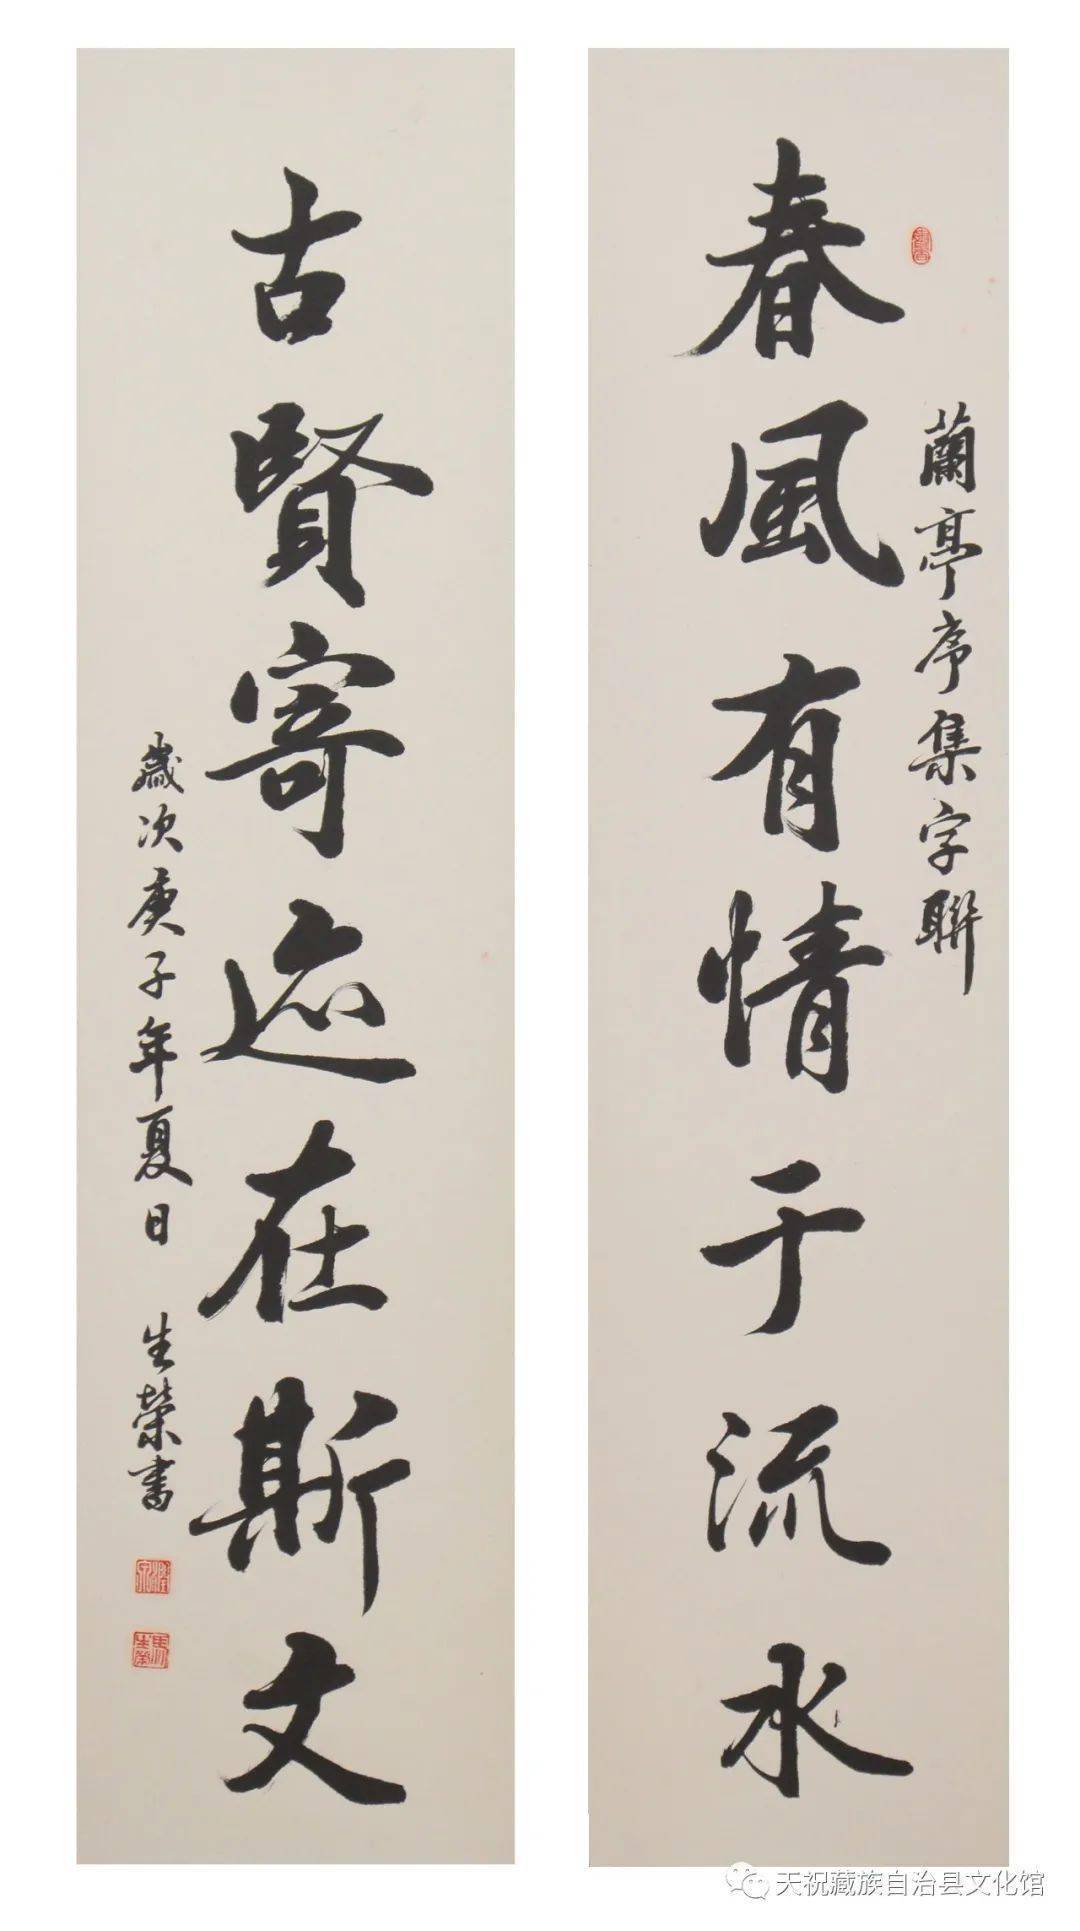 春風有情于流水
蘭亭序集字聯
古賢寄迹在斯文
歲次庚子年夏日 生榮書
馬生榮
天祝藏族自治县文化馆